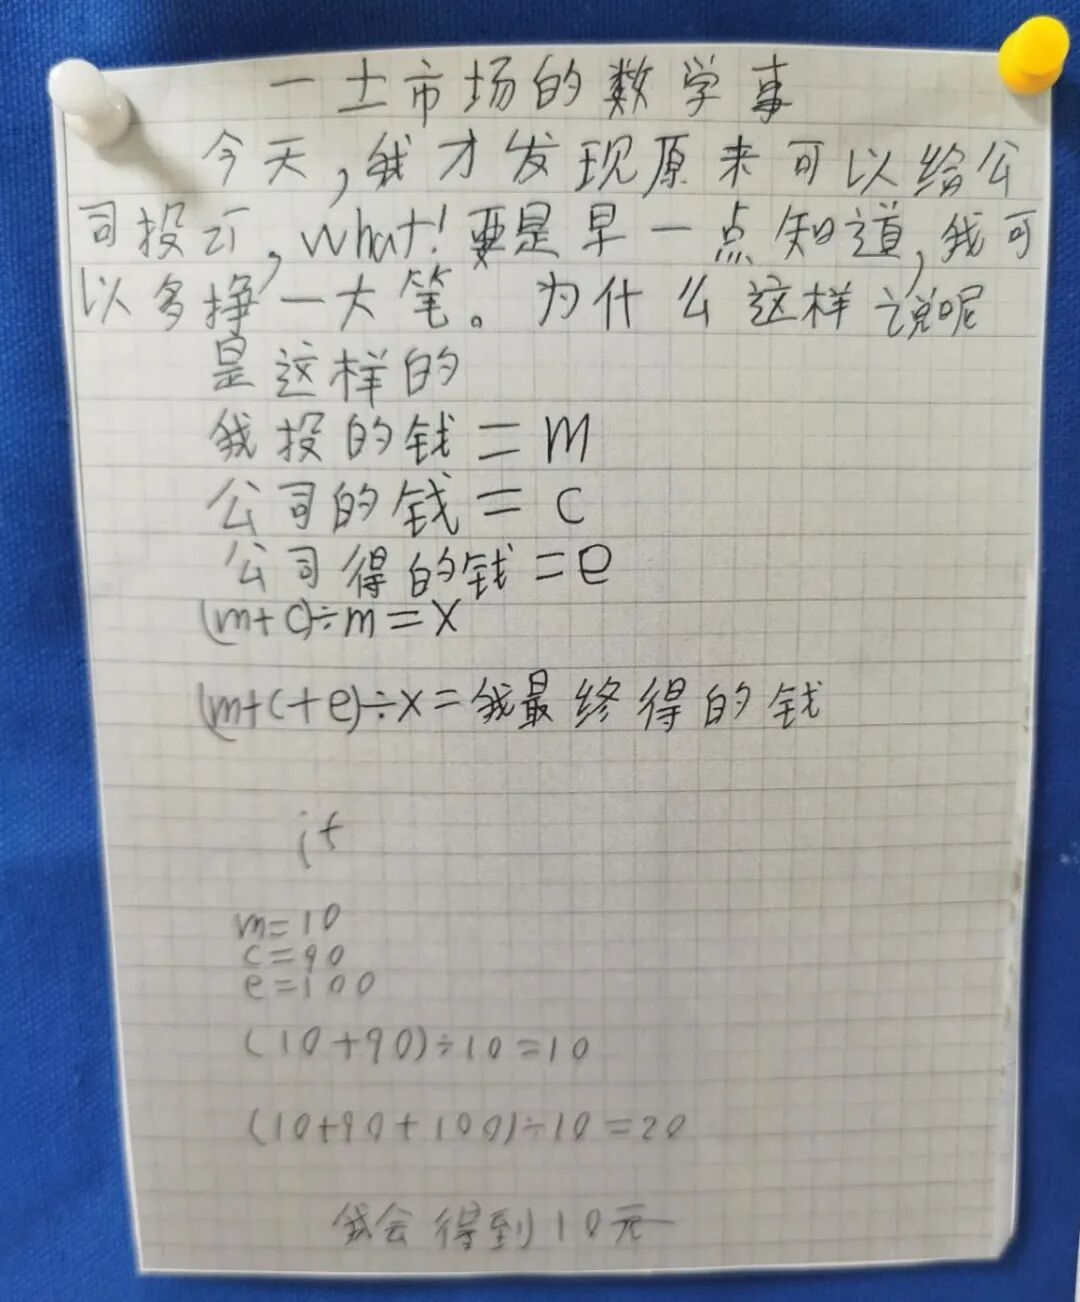 一土市场的数学事
今天,我才发现原来可以给公
司投云,what!要是早一点知道,我可
以多挣一大笔。为什么这样说呢
是这样的
我投的钱=m
公司的钱=c
公司得的钱=e
(m+c)÷m=x
(m+c+e)÷x=我最终得的钱
if
m=10
c=90
e=100
(10+90)÷10=10
(10+90+100)÷10=20
我会得到10元